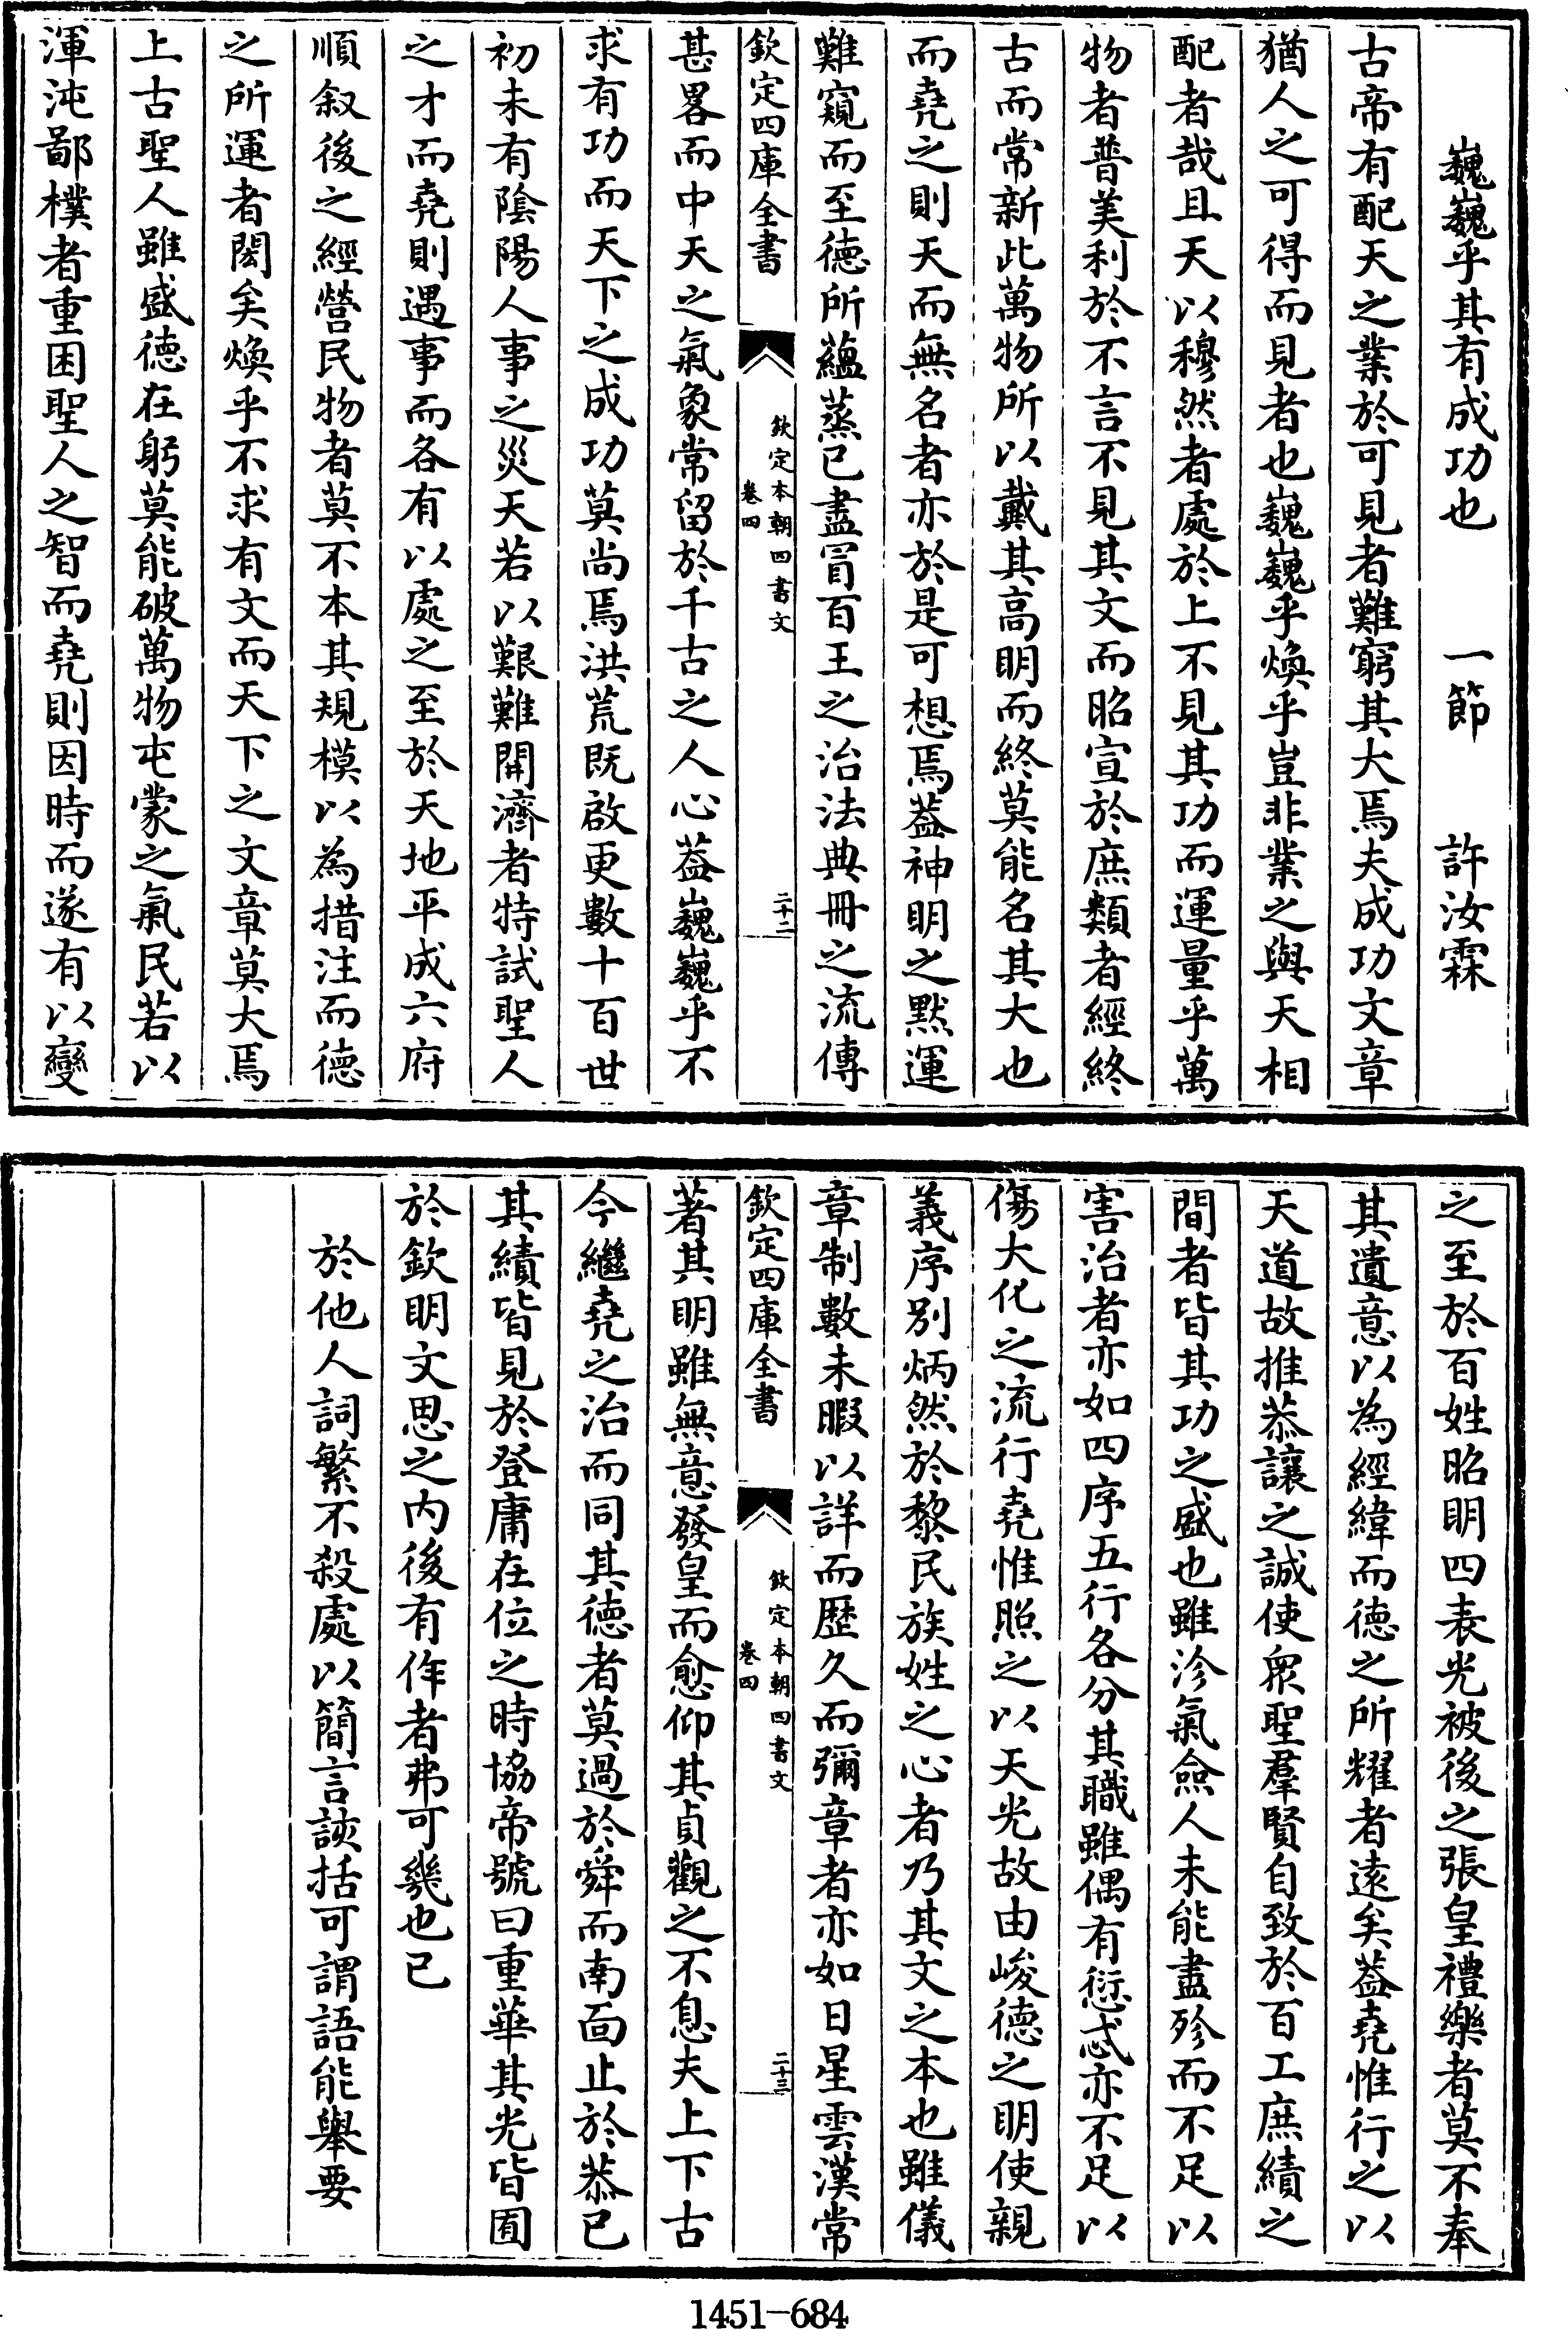 巍巍乎其有成功也　一節　許汝霖
古帝有配天之業於可見者難窮其大焉夫成功文章
猶人之可得而見者也巍巍乎煥乎豈非業之與天相
配者哉且天以穆然者處於上不見其功而運量乎萬
物者普美利於不言不見其文而昭宣於庶類者經終
古而常新此萬物所以戴其高明而終莫能名其大也
而堯之則天而無名者亦於是可想焉葢神明之默運
難窺而至德所蘊蒸已盡冐百王之治法典冊之流傳
欽定四庫全書
欽定本朝四書文
卷四
二十二
甚畧而中天之氣象常留於千古之人心葢巍巍乎不
求有功而天下之成功莫尚焉洪荒既啟更數十百世
初未有陰陽人事之災天若以艱難開濟者特試聖人
之才而堯則遇事而各有以處之至於天地平成六府
順叙後之經營民物者莫不本其規模以為措注而德
之所運者閎矣煥乎不求有文而天下之文章莫大焉
上古聖人雖盛德在躬莫能破萬物屯蒙之氣民若以
渾沌鄙樸者重困聖人之智而堯則因時而遂有以變
之至於百姓昭明四表光被後之張皇禮樂者莫不奉
其遺意以為經緯而德之所耀者遠矣葢堯惟行之以
天道故推恭讓之誠使衆聖羣賢自致於百工庶績之
間者皆其功之盛也雖沴氣僉人未能盡殄而不足以
害治者亦如四序五行各分其職雖偶有愆忒亦不足以
傷大化之流行堯惟照之以天光故由峻德之明使親
義序别炳然於黎民族姓之心者乃其文之本也雖儀
章制數未暇以詳而歷久而彌章者亦如日星雲漢常
欽定四庫全書
欽定本朝四書文
卷四
二十三
著其明雖無意發皇而愈仰其貞觀之不息夫上下古
今繼堯之治而同其德者莫過於舜而南面止於恭已
其績皆見於登庸在位之時協帝號曰重華其光皆囿
於欽明文思之内後有作者弗可幾也已
於他人詞繁不殺處以簡言該括可謂語能舉要
1451-684